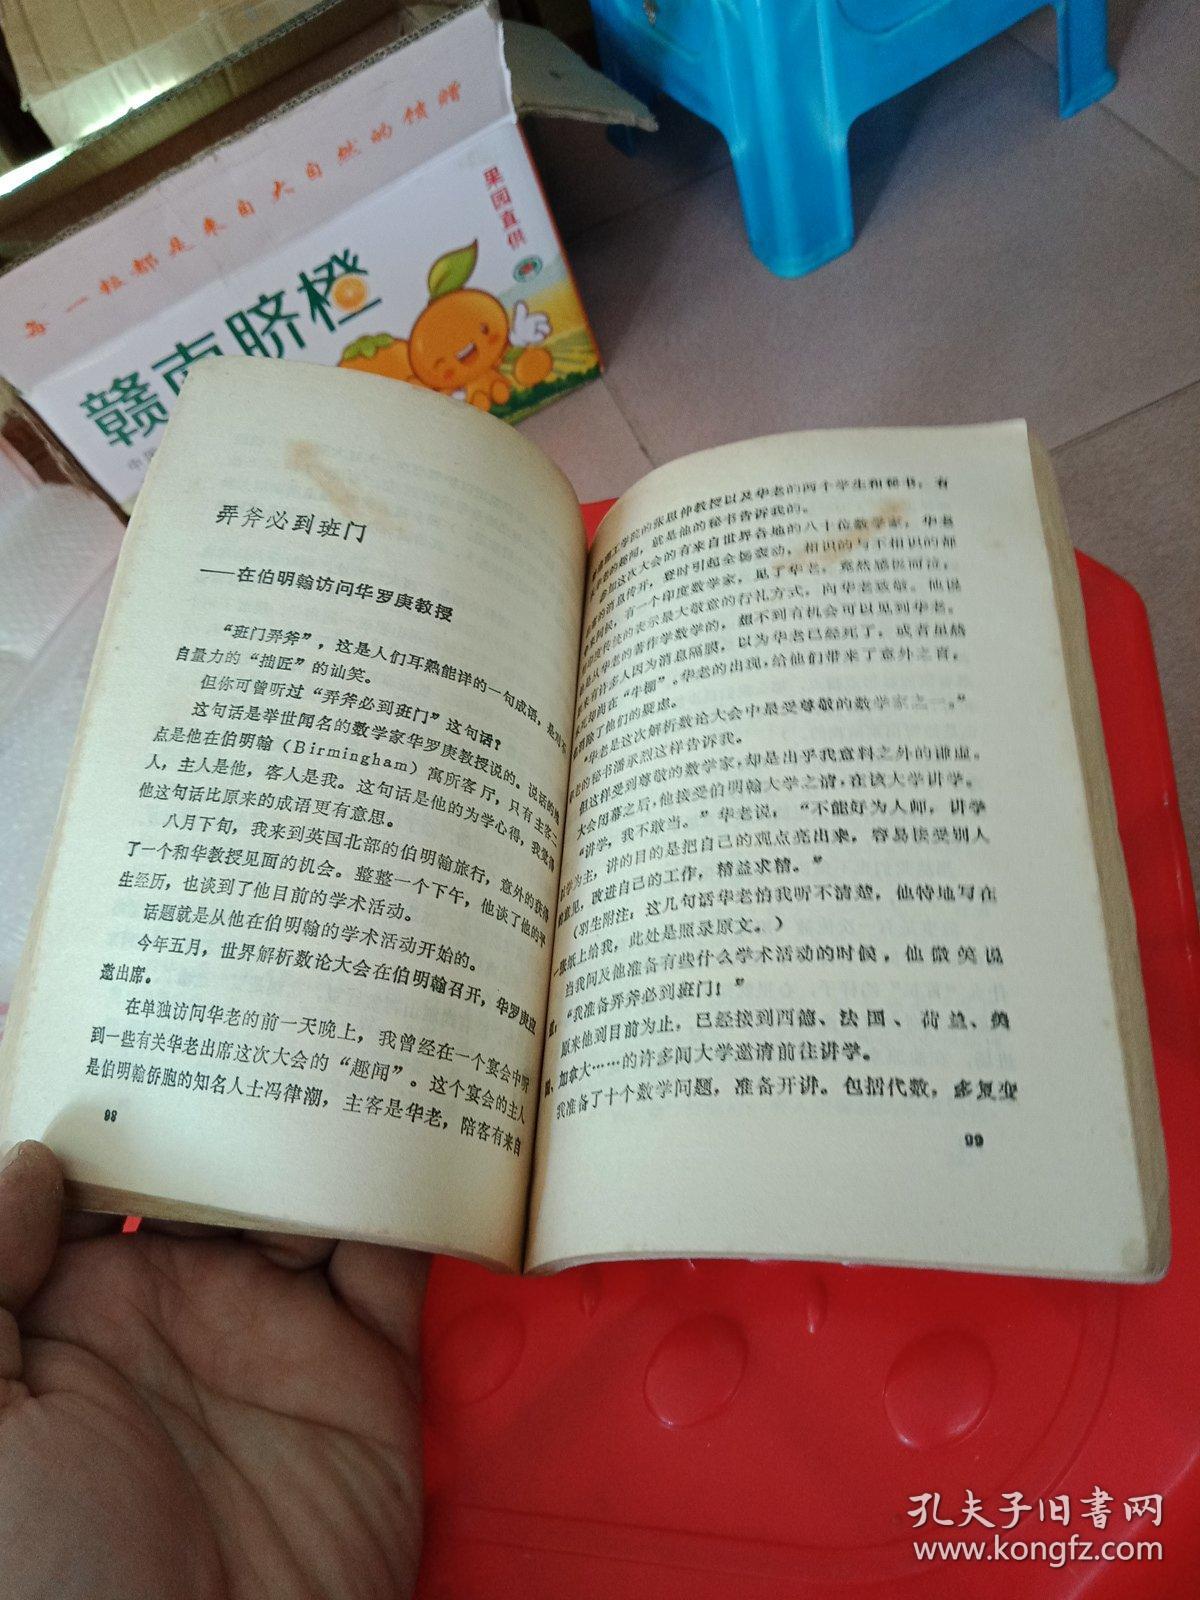 每一粒都是来自大自然的馈赠
果园直供
赣南脐橙
弄斧必到班门
——在伯明翰访问华罗庚教授
“班门弄斧”，这是人们耳熟能详的一句成语，是对不
自量力的“拙匠”的讪笑。
但你可曾听过“弄斧必到班门”这句话？
这句话是举世闻名的数学家华罗庚教授说的。说话的地
点是他在伯明翰（Birmingham）寓所客厅，只有主客二
人，主人是他，客人是我。这句话是他的为学心得，我觉得
他这句话比原来的成语更有意思。
八月下旬，我来到英国北部的伯明翰旅行，意外的获得
了一个和华教授见面的机会。整整一个下午，他谈了他的平
生经历，也谈到了他目前的学术活动。
话题就是从他在伯明翰的学术活动开始的。
今年五月，世界解析数论大会在伯明翰召开，华罗庚应
邀出席。
在单独访问华老的前一天晚上，我曾经在一个宴会中听
到一些有关华老出席这次大会的“趣闻”。这个宴会的主人
是伯明翰侨胞的知名人士冯律潮，主客是华老，陪客有来自
98
理工学院的张思仲教授以及华老的两个学生和秘书，有
华老的趣闻，就是他的秘书告诉我的。
参加这次大会的有来自世界各地的八十位数学家，华老
的消息传开，登时引起全场轰动，相识的与不相识的都
来问候，有一个印度数学家，见了华老，竟然感极而泣，
印度传统的表示最大敬意的行礼方式，向华老致敬。他说
是从华老的著作学数学的，想不到有机会可以见到华老。
来有许多人因为消息隔膜，以为华老已经死了，或者虽然
死却尚在“牛棚”。华老的出现，给他们带来了意外之喜，
消除了他们的疑虑。
“华老是这次解析数论大会中最受尊敬的数学家之一。”
老的秘书潘承烈这样告诉我。
但这样受到尊敬的数学家，却是出乎我意料之外的谦虚。
大会闭幕之后，他接受伯明翰大学之请，在该大学讲学。
“讲学，我不敢当。”华老说，“不能好为人师，讲学
以学为主，讲的目的是把自己的观点亮出来，容易接受别人
的意见，改进自己的工作，精益求精。”
（羽生附注：这几句话华老怕我听不清楚，他特地写在
一张纸上给我，此处是照录原文。）
当我问及他准备有些什么学术活动的时候，他微笑说
道：“我准备弄斧必到班门！”
原来他到目前为止，已经接到西德、法国、荷兰、美
国、加拿大……的许多间大学邀请前往讲学。
我准备了十个数学问题，准备开讲。包括代数，多复变
99
孔夫子旧书网
www.kongfz.com